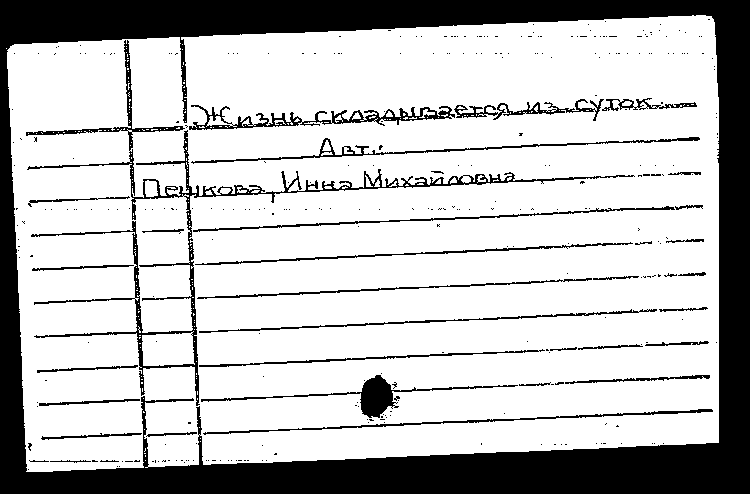 Жизнь складывается из суток.
Авт.:
Пешкова, Инна Михайловна